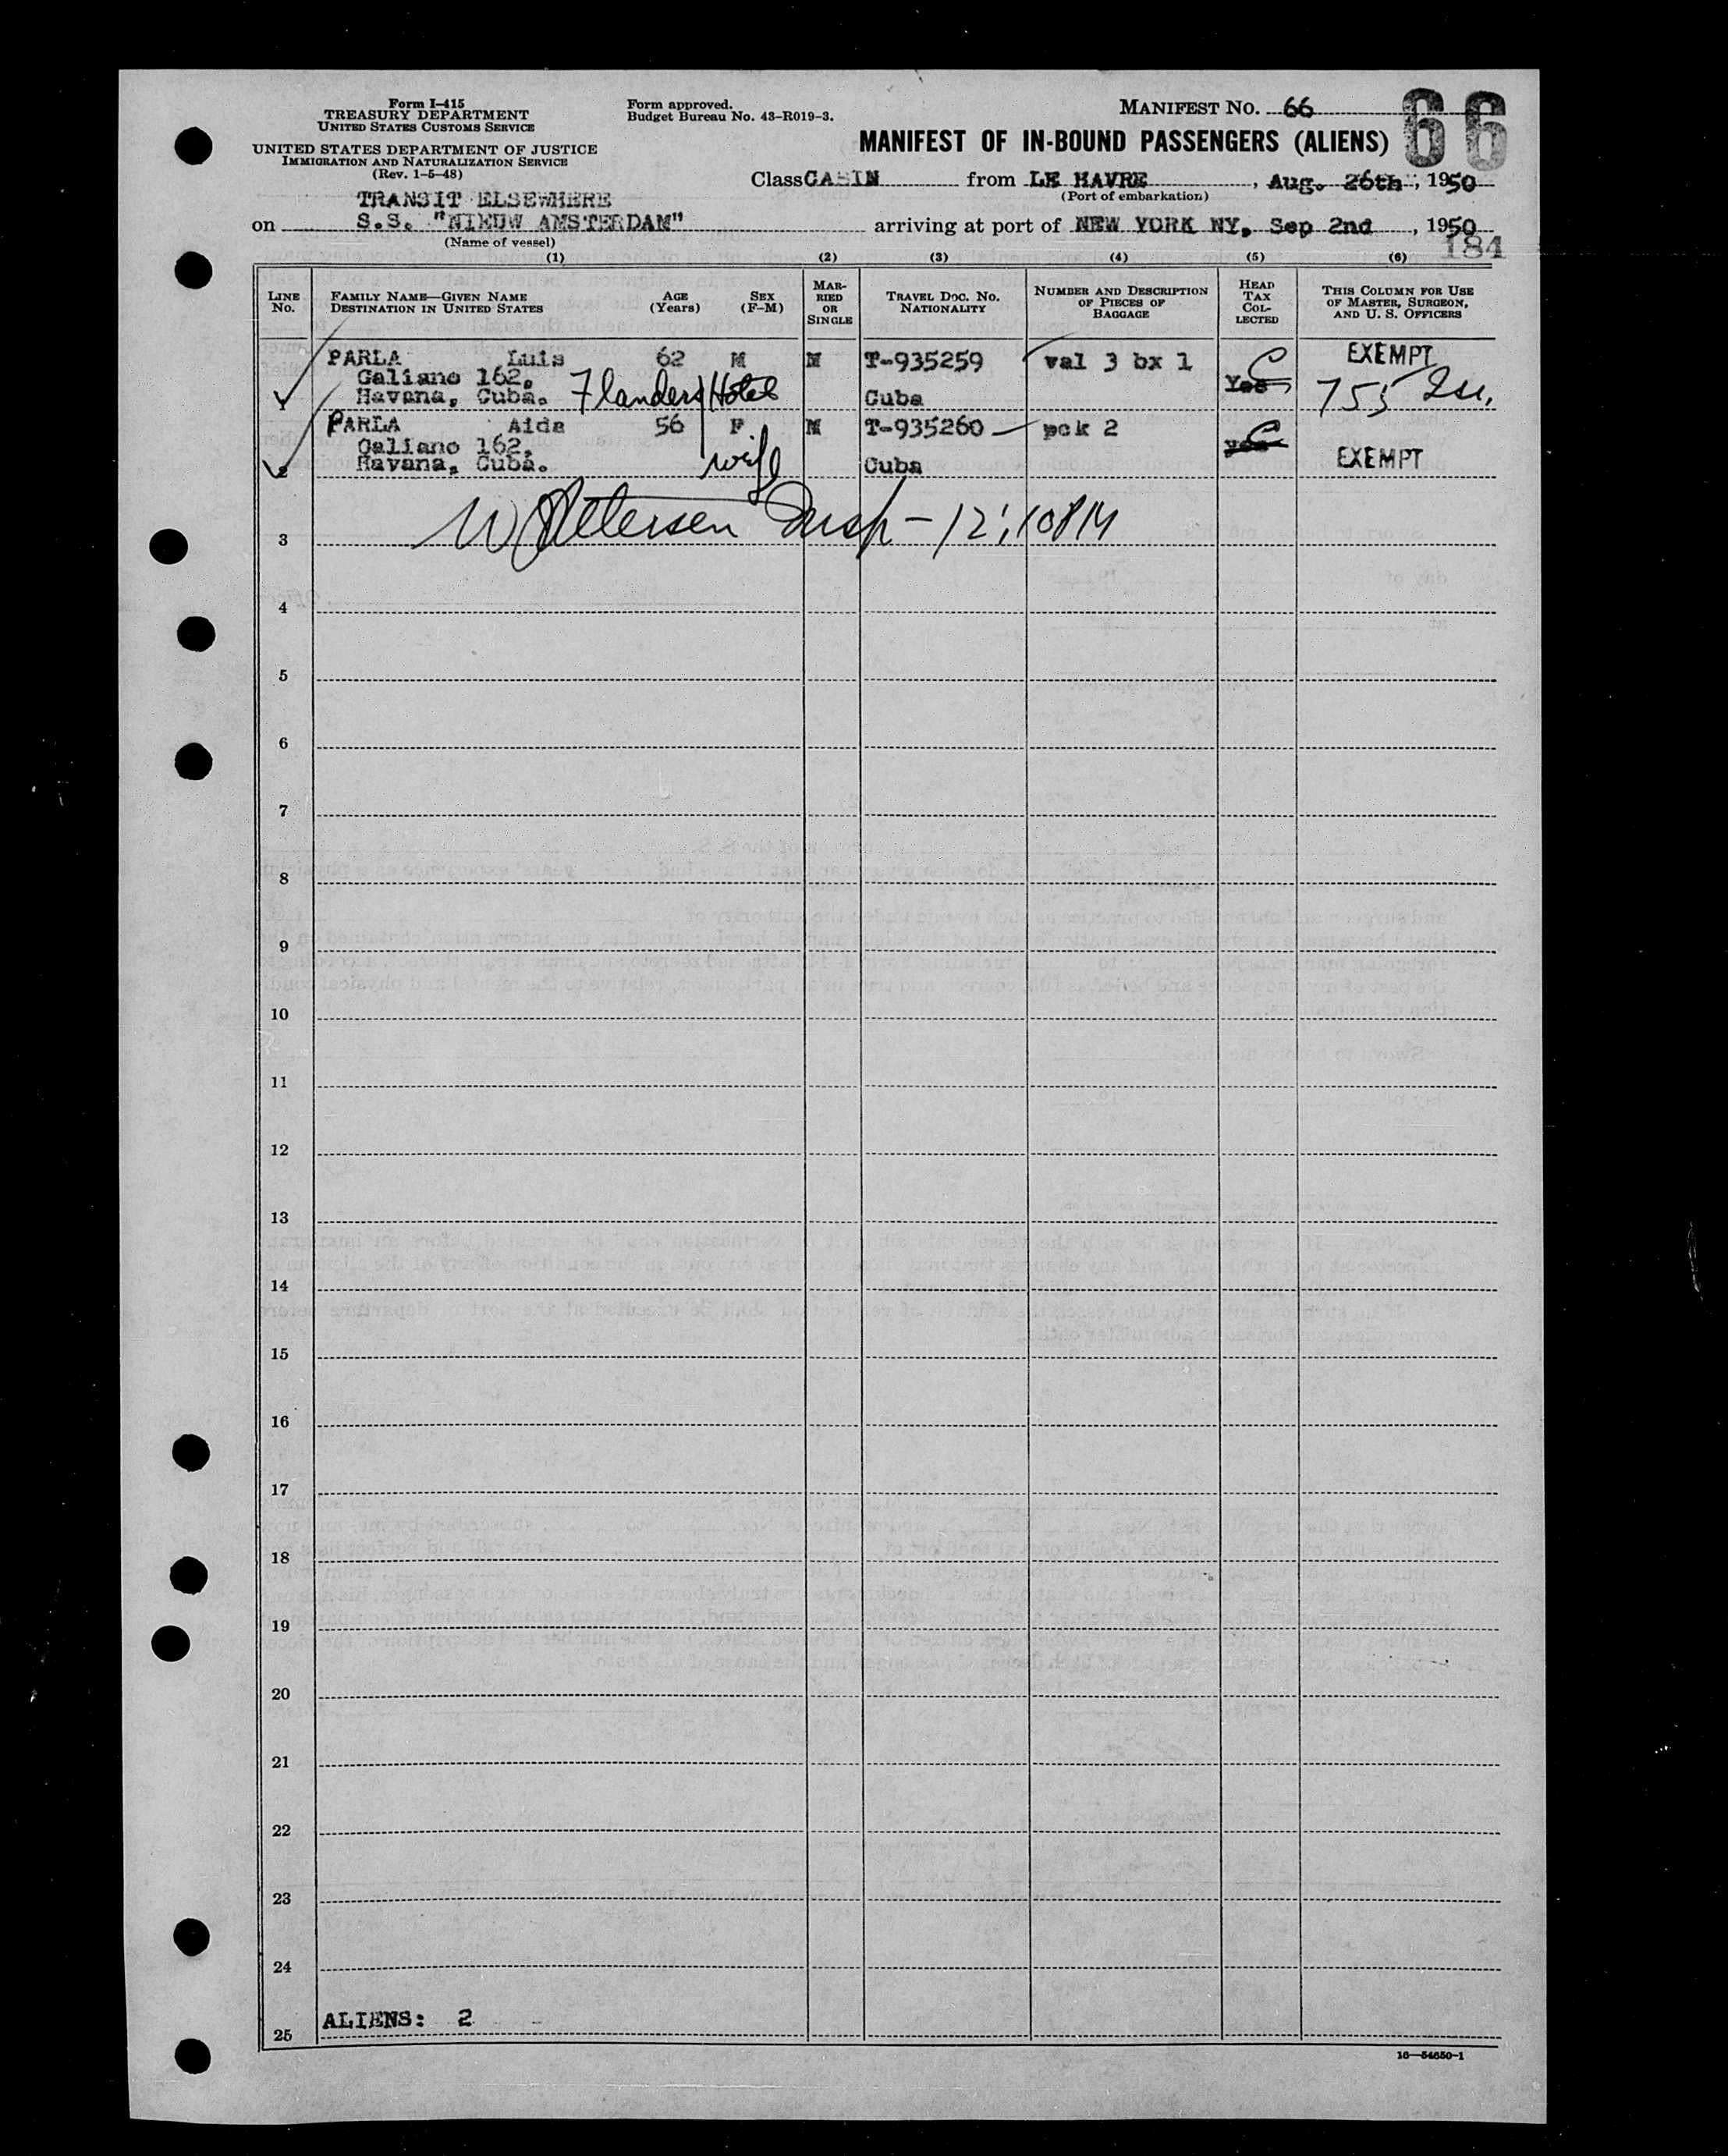 Form I-415
TREASURY DEPARTMENT
UNITED STATES CUSTOMS SERVICE
UNITED STATES DEPARTMENT OF JUSTICE
IMMIGRATION AND NATURALIZATION SERVICE
(Rev. 1-5-48)
Form approved.
Budget Bureau No. 43-R019-3.
MANIFEST NO. 66
66
MANIFEST OF IN-BOUND PASSENGERS (ALIENS)
Class CABIN from LE HAVRE, Aug. 26th, 1950
(Port of embarkation)
TRANSIT ELSEWHERE
on S.S. "NIEUW AMSTERDAM" arriving at port of NEW YORK NY, Sep 2nd, 1950
(Name of vessel)
184
(1) (2) (3) (4) (5) (6)
LINE No. FAMILY NAME—GIVEN NAME DESTINATION IN UNITED STATES AGE (Years) SEX (F-M) MARRIED OR SINGLE TRAVEL DOC. NO. NATIONALITY NUMBER AND DESCRIPTION OF PIECES OF BAGGAGE HEAD TAX COLLECTED THIS COLUMN FOR USE OF MASTER, SURGEON, AND U. S. OFFICERS
PARLA Luis 62 M M T-935259 val 3 bx 1 EXEMPT
Galiano 162, Yes C 755
1 Havana, Cuba. Flanders Hotel Cuba
PARLA Aida 56 F M T-935260 pck 2 yes C
Galiano 162,
2 Havana, Cuba. wife Cuba EXEMPT
3 Petersen Insp - 12:10 PM
4
5
6
7
8
9
10
11
12
13
14
15
16
17
18
19
20
21
22
23
24
25 ALIENS: 2
16—54650-1